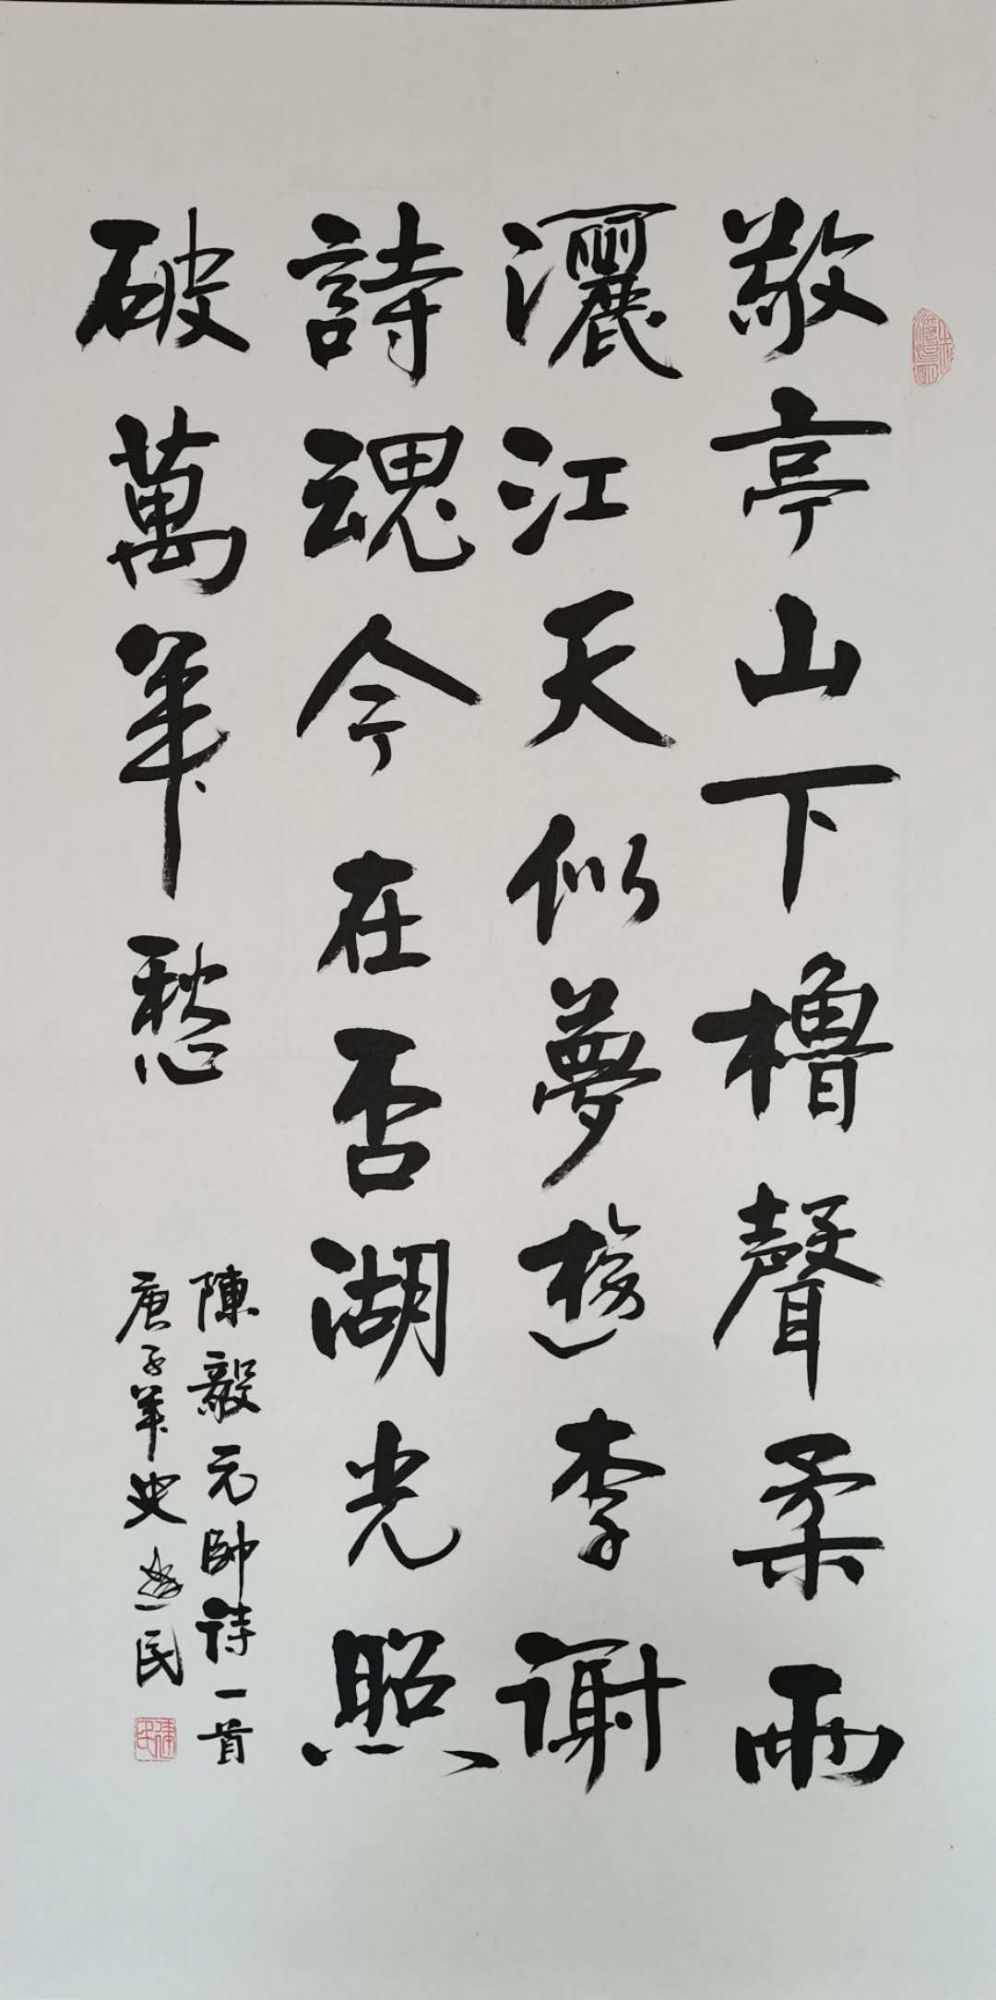 敬亭山下櫓聲柔雨
灑江天似夢遊李謝
詩魂今在否湖光照
破萬年愁
陳毅元帥詩一首
庚子年史建民